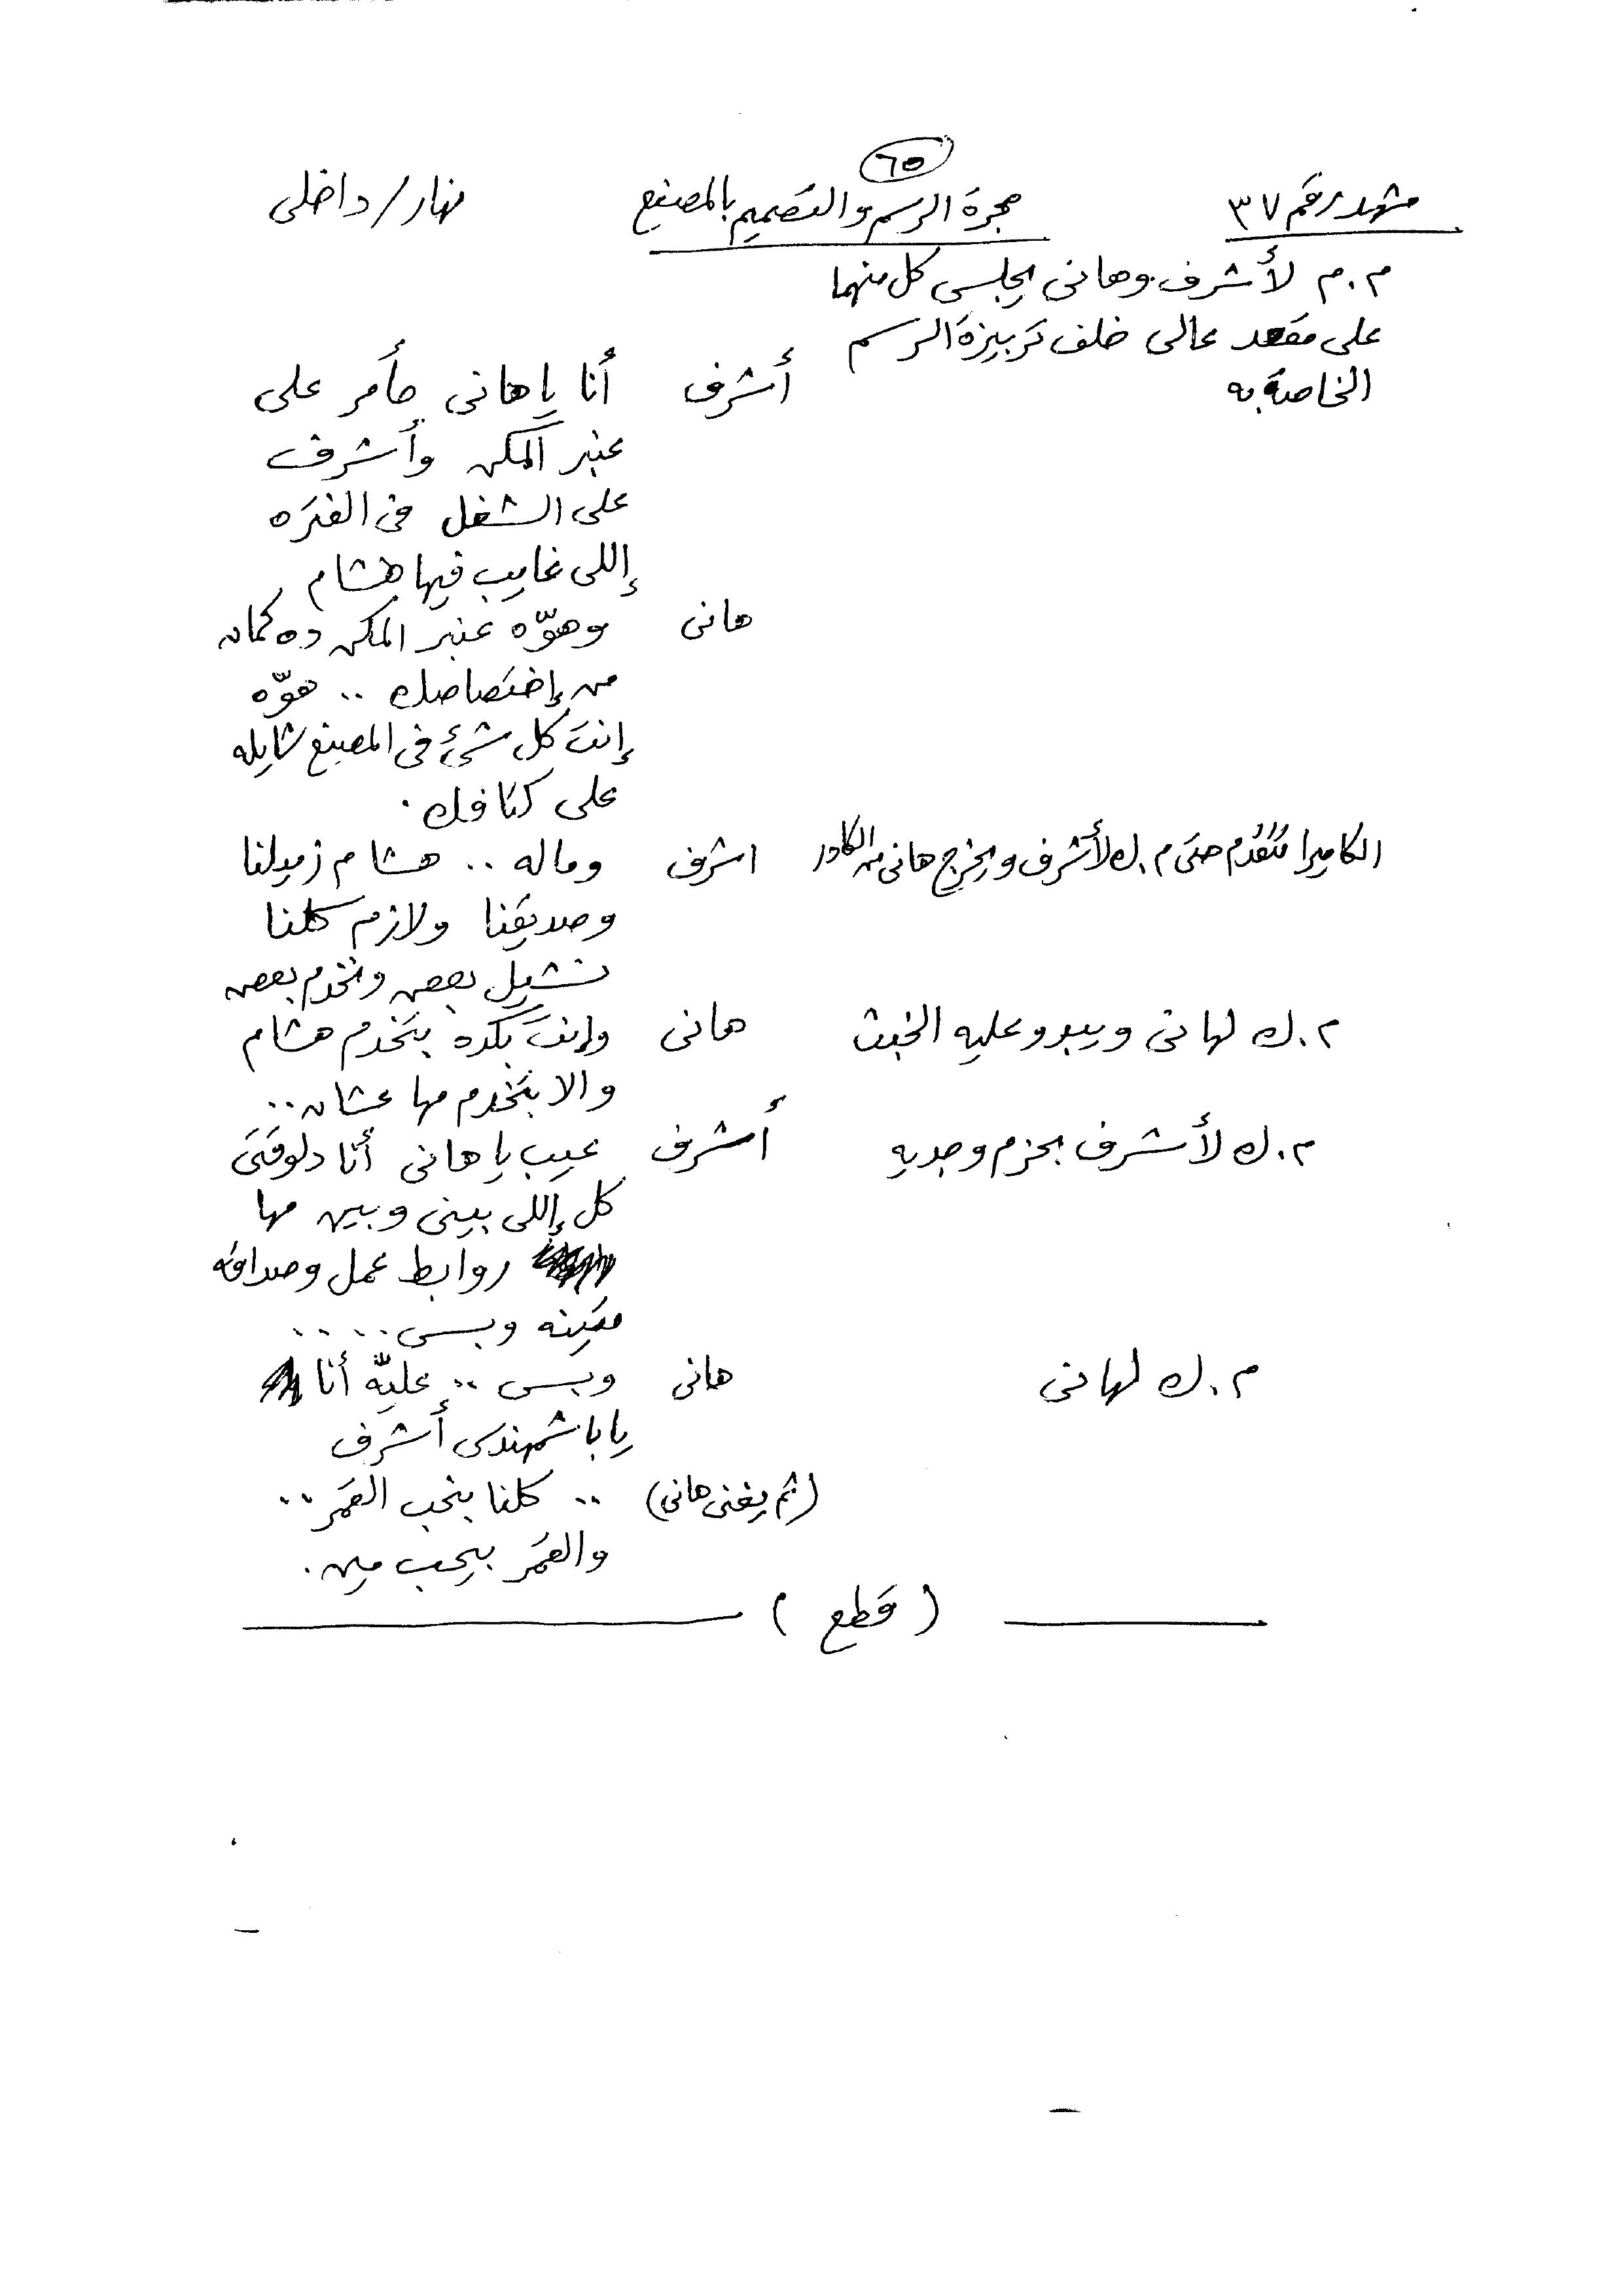 ٦٥
مشهد رقم ٣٧ حجرة الرسم والتصميم بالمصنع نهار/داخلى
م.م لأشرف وهانى يجلس كل منهما
على مقعد عالى خلف تربيزة الرسم
الخاصة به أشرف أنا يا هانى حأمر على
عنبر المكن وأشرف
على الشغل فى الفتره
إللى غايب فيها هشام
هانى وهوّه عنبر المكن ده كمان
من إختصاصك .. هوّه
إنت كل شئ فى المصنع شايله
على كتافك .
الكاميرا تتقدم حتى م.ك لأشرف ويخرج هانى من الكادر اشرف وماله .. هشام زميلنا
وصديقنا ولازم كلنا
نشيل بعض ونخدم بعض
م.ك لهانى ويبدو عليه الخبث هانى وإنت بكده بتخدم هشام
والا بتخدم مها عشان ..
م.ك لأشرف بحزم وجديه أشرف عيب يا هانى أنا دلوقتى
كل إللى بينى وبين مها
روابط عمل وصداقه
متينه وبس ....
م.ك لهانى هانى وبس .. عليّه أنا
يا باشمهندس أشرف
(ثم يغنى هانى) .. كلنا بنحب القمر ..
والقمر بيحب مين .
( قطع )